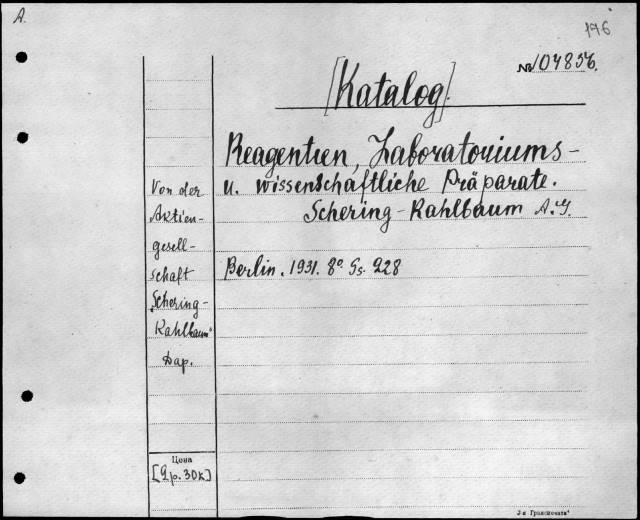 A.
176
№ 104836.
[Katalog].
Reagentien, Laboratoriums-
u. wissenschaftliche Präparate.
Schering-Kahlbaum A.G.
Berlin. 1931. 8° Ss. 228
Von der
Aktien-
gesell-
schaft
„Schering-
Kahlbaum"
Dар.
Цена
[2 р. 30к]